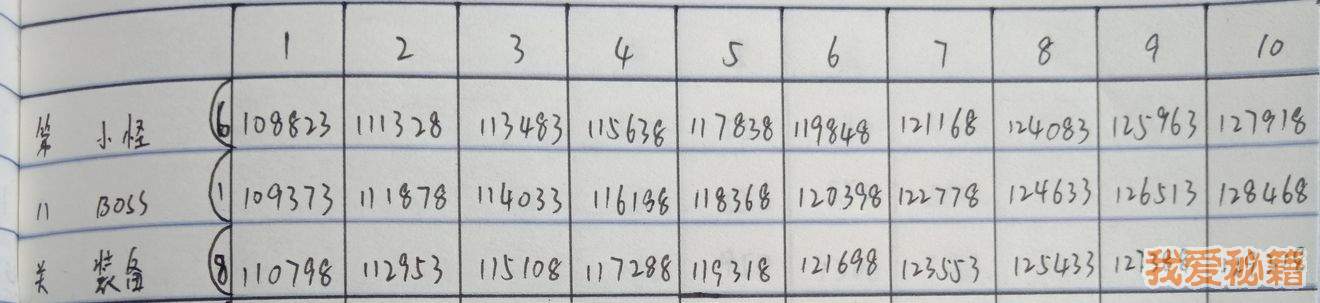 1 2 3 4 5 6 7 8 9 10
第 小怪 6 108823 111328 113483 115638 117838 119848 121168 124083 125963 127918
11 BOSS 1 109373 111878 114033 116188 118368 120398 122778 124633 126513 128468
关 装备 8 110798 112953 115108 117288 119318 121698 123553 125433
我爱秘籍